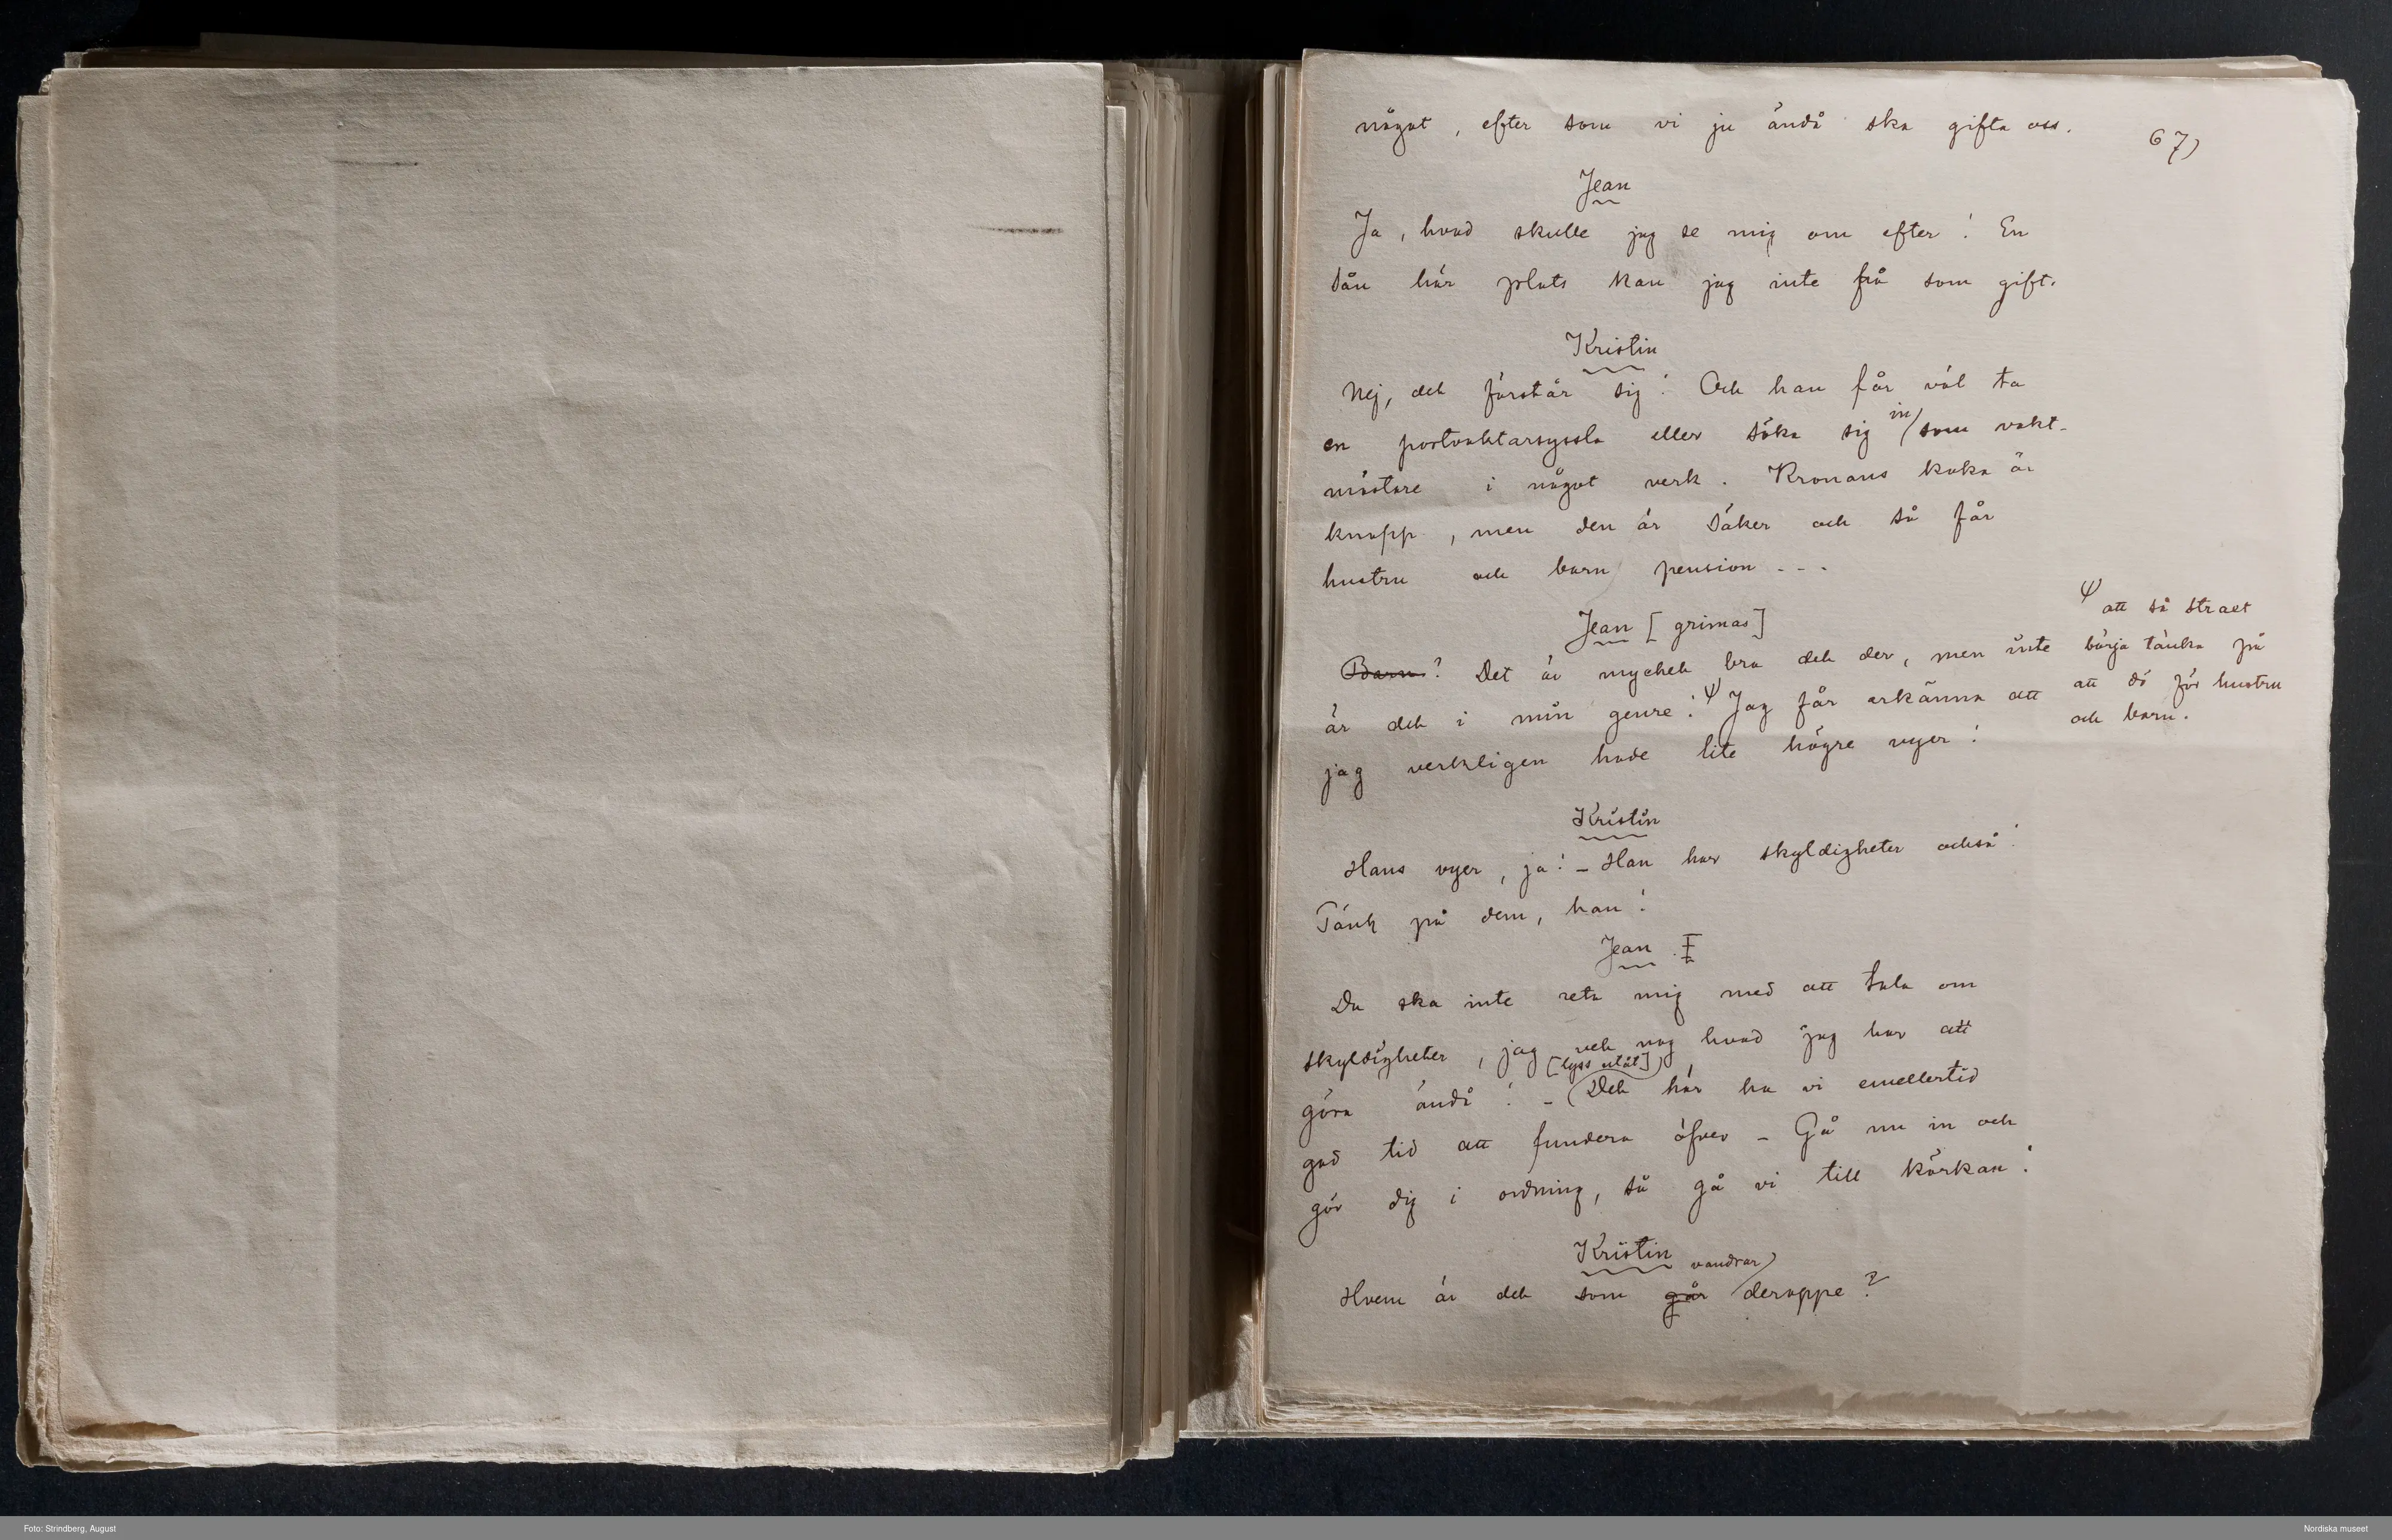 något, efter som vi ju ändå ska gifta oss.
67)
Jean
Ja, hvad skulle jag se mig om efter! En
sån här plats kan jag inte få som gift.
Kristin
Nej, det förstår sig! Och han får väl ta
en portvaktarsyssla eller söka sig in som vakt-
mästare i något verk. Kronans kaka är
knapp, men den är säker och så får
hustru och barn pension - - -
Jean [grimas]
Barn? Det är mycket bra det der, men inte
är det i min genre! Ψ Jag får erkänna att
jag verkligen hade lite högre vyer!
Ψ att så straxt
börja tänka på
att dö för hustru
och barn.
Kristin
Hans vyer, ja! – Han har skyldigheter också!
Tänk på dem, han!
Jean
Du ska inte reta mig med att tala om
skyldigheter, jag vet nog hvad jag har att
göra ändå! – [lyss utåt] Det här ha vi emellertid
god tid att fundera öfver – Gå nu in och
gör dig i ordning, så gå vi till körkan!
Kristin
Hvem är det som går vandrar deroppe?
Foto: Strindberg, August
Nordiska museet